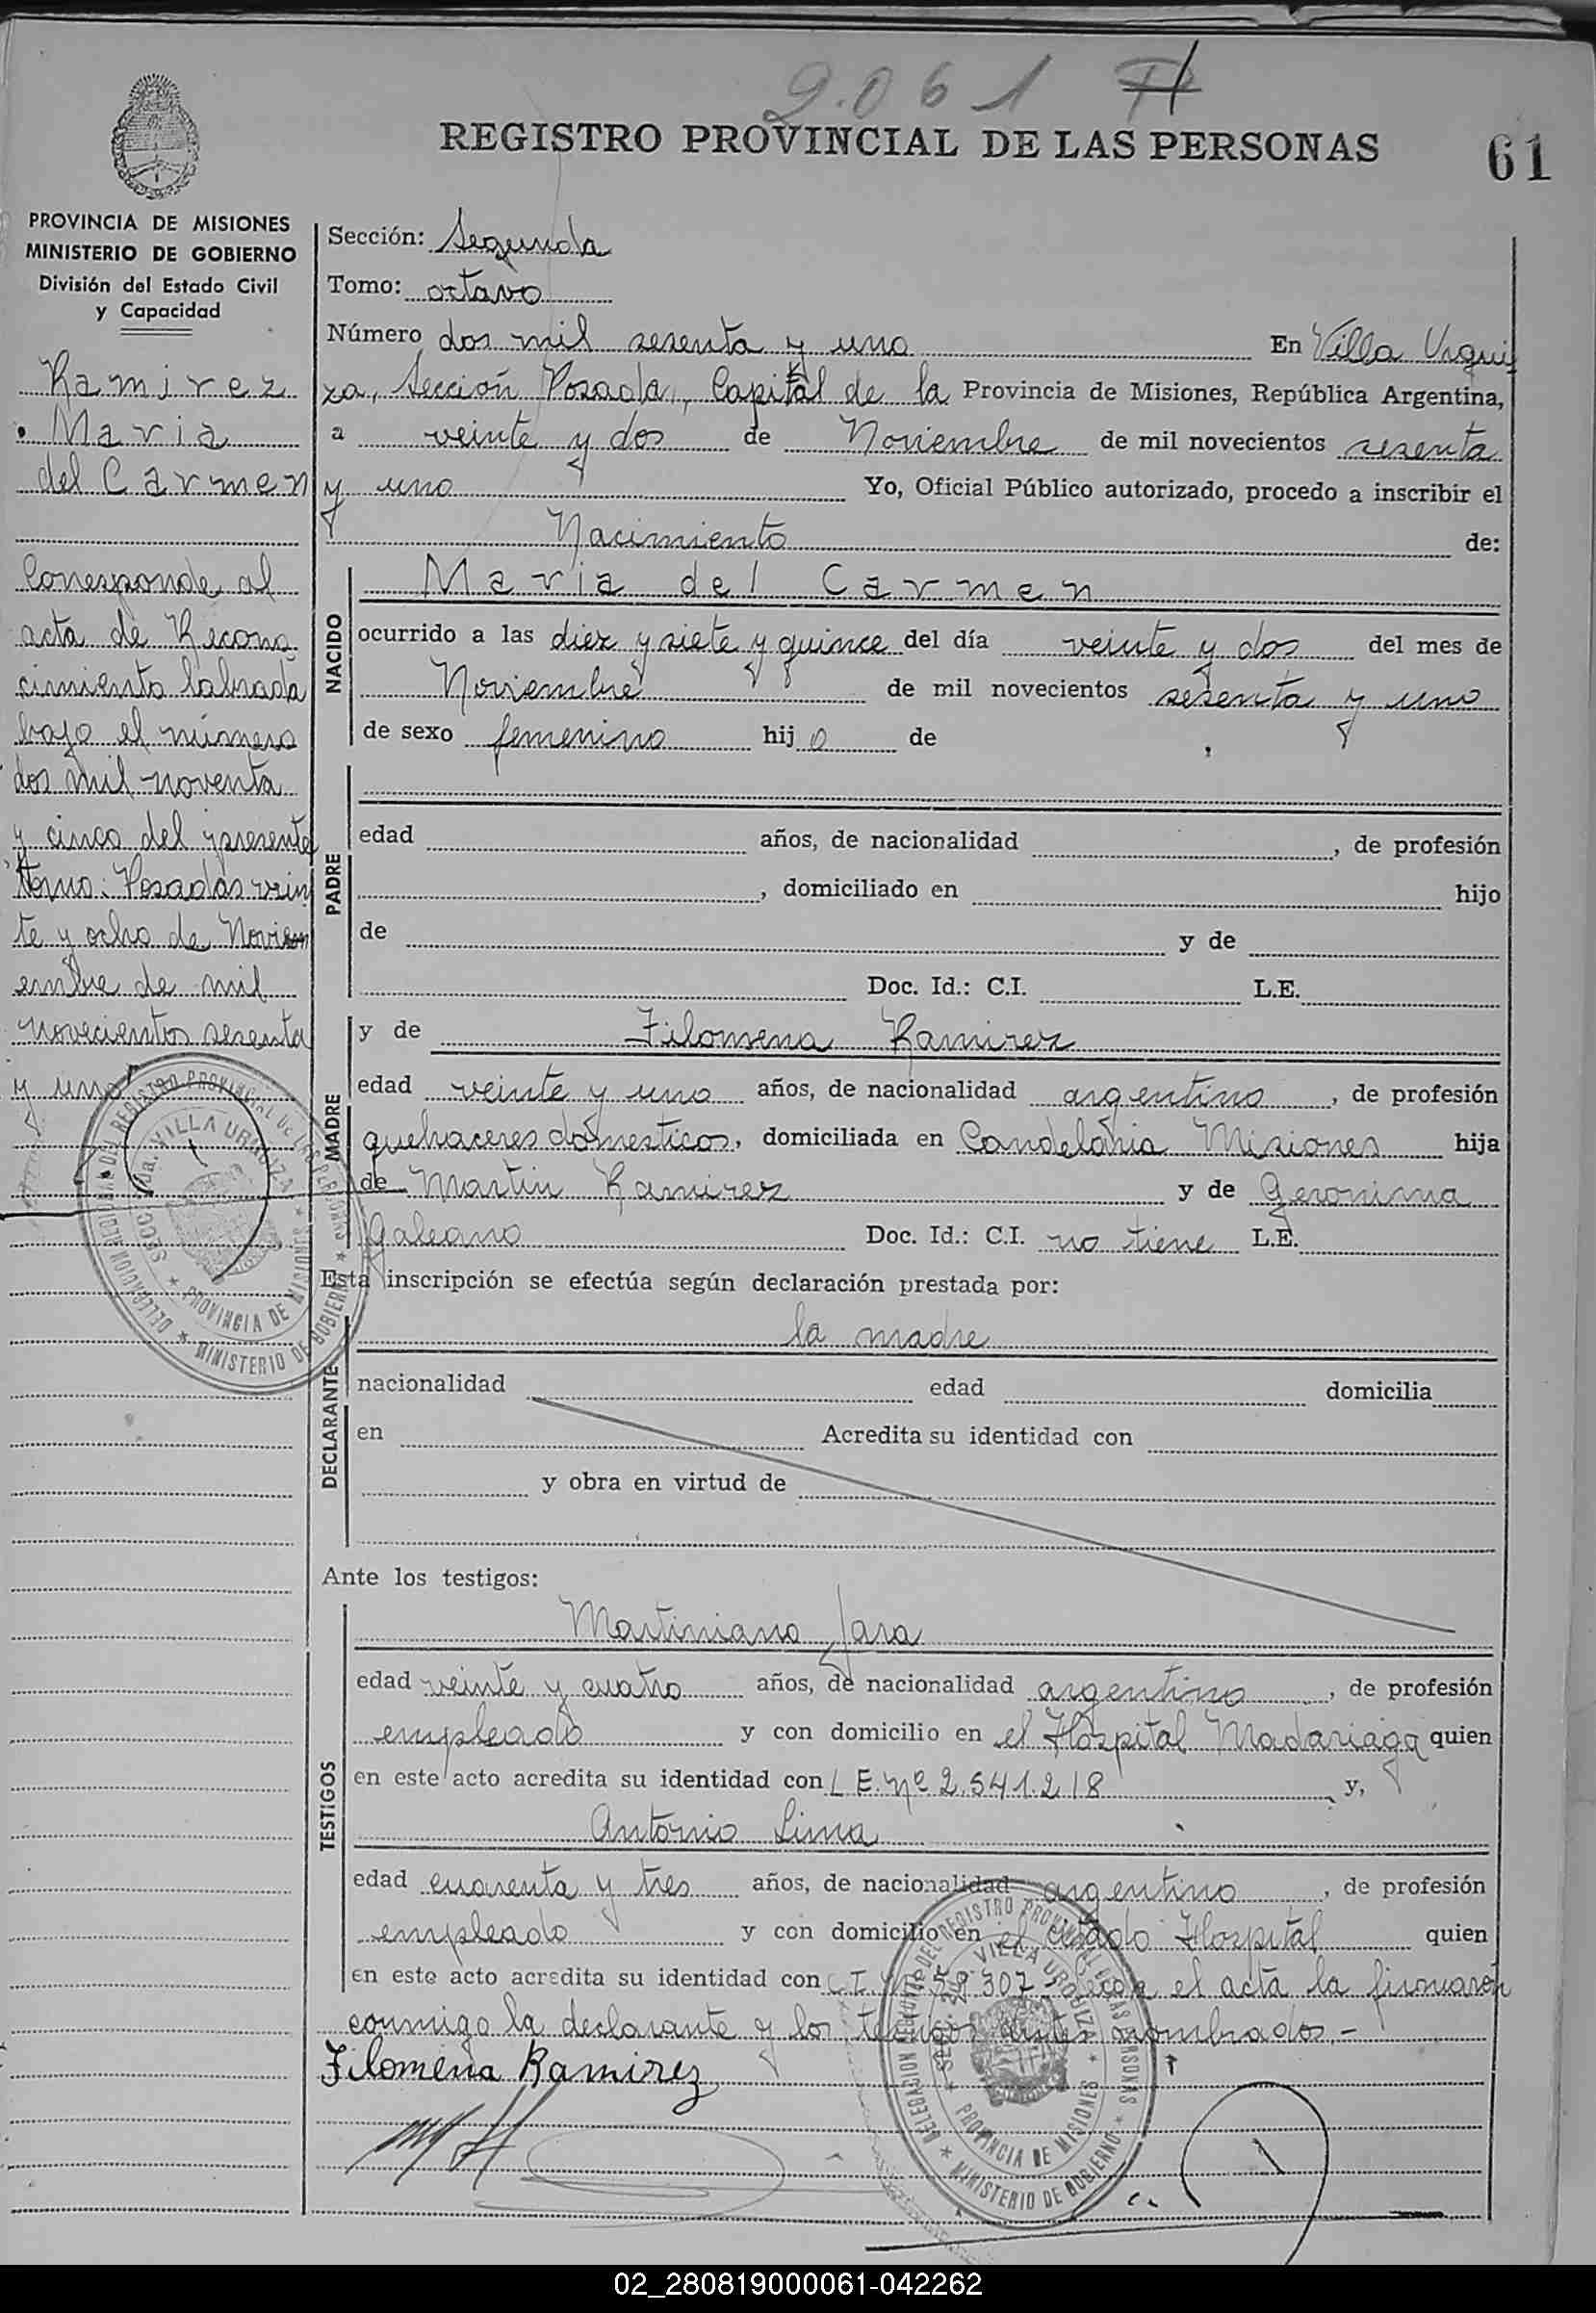 2.061
REGISTRO PROVINCIAL DE LAS PERSONAS
61
PROVINCIA DE MISIONES
MINISTERIO DE GOBIERNO
División del Estado Civil
y Capacidad
Ramirez
Maria
del Carmen
Corresponde al
acta de Recono
cimiento labrada
bajo el número
dos mil noventa
y cinco del presente
tomo. Posadas vein
te y ocho de Noviem
embre de mil
novecientos sesenta
y uno
Sección: Segunda
Tomo: octavo
Número dos mil sesenta y uno En Villa Urqui
za, Sección Posada, Capital de la Provincia de Misiones, República Argentina,
a veinte y dos de Noviembre de mil novecientos sesenta
y uno Yo, Oficial Público autorizado, procedo a inscribir el
Nacimiento de:
NACIDO
Maria del Carmen
ocurrido a las diez y siete y quince del día veinte y dos del mes de
Noviembre de mil novecientos sesenta y uno
de sexo femenino hij o de
PADRE
edad años, de nacionalidad , de profesión
, domiciliado en hijo
de y de
Doc. Id.: C.I. L.E.
MADRE
y de Filomena Ramirez
edad veinte y uno años, de nacionalidad argentino, de profesión
quehaceres domesticos, domiciliada en Candelaria Misiones hija
de Martin Ramirez y de Geronima
Galeano Doc. Id.: C.I. no tiene L.E.
Esta inscripción se efectúa según declaración prestada por:
DECLARANTE
la madre
nacionalidad edad domicilia
en Acredita su identidad con
y obra en virtud de
Ante los testigos:
TESTIGOS
Martiniano Jara
edad veinte y cuatro años, de nacionalidad argentino, de profesión
empleado y con domicilio en el Hospital Madariaga quien
en este acto acredita su identidad con L E. nº 2.541.218 y,
Antonio Lima
edad cuarenta y tres años, de nacionalidad argentino, de profesión
empleado y con domicilio en el citado Hospital quien
en este acto acredita su identidad con C.I. 59.307 el acta la firmaron
conmigo la declarante y los testigos antes nombrados.-
Filomena Ramirez
DELEGACION REGIONAL DEL REGISTRO PROVINCIAL DE LAS PERSONAS
SECC. 2da. VILLA URQUIZA
PROVINCIA DE MISIONES
MINISTERIO DE GOBIERNO
DELEGACION REGIONAL DEL REGISTRO PROVINCIAL DE LAS PERSONAS
SECC. 2da. VILLA URQUIZA
PROVINCIA DE MISIONES
MINISTERIO DE GOBIERNO
02_280819000061-042262